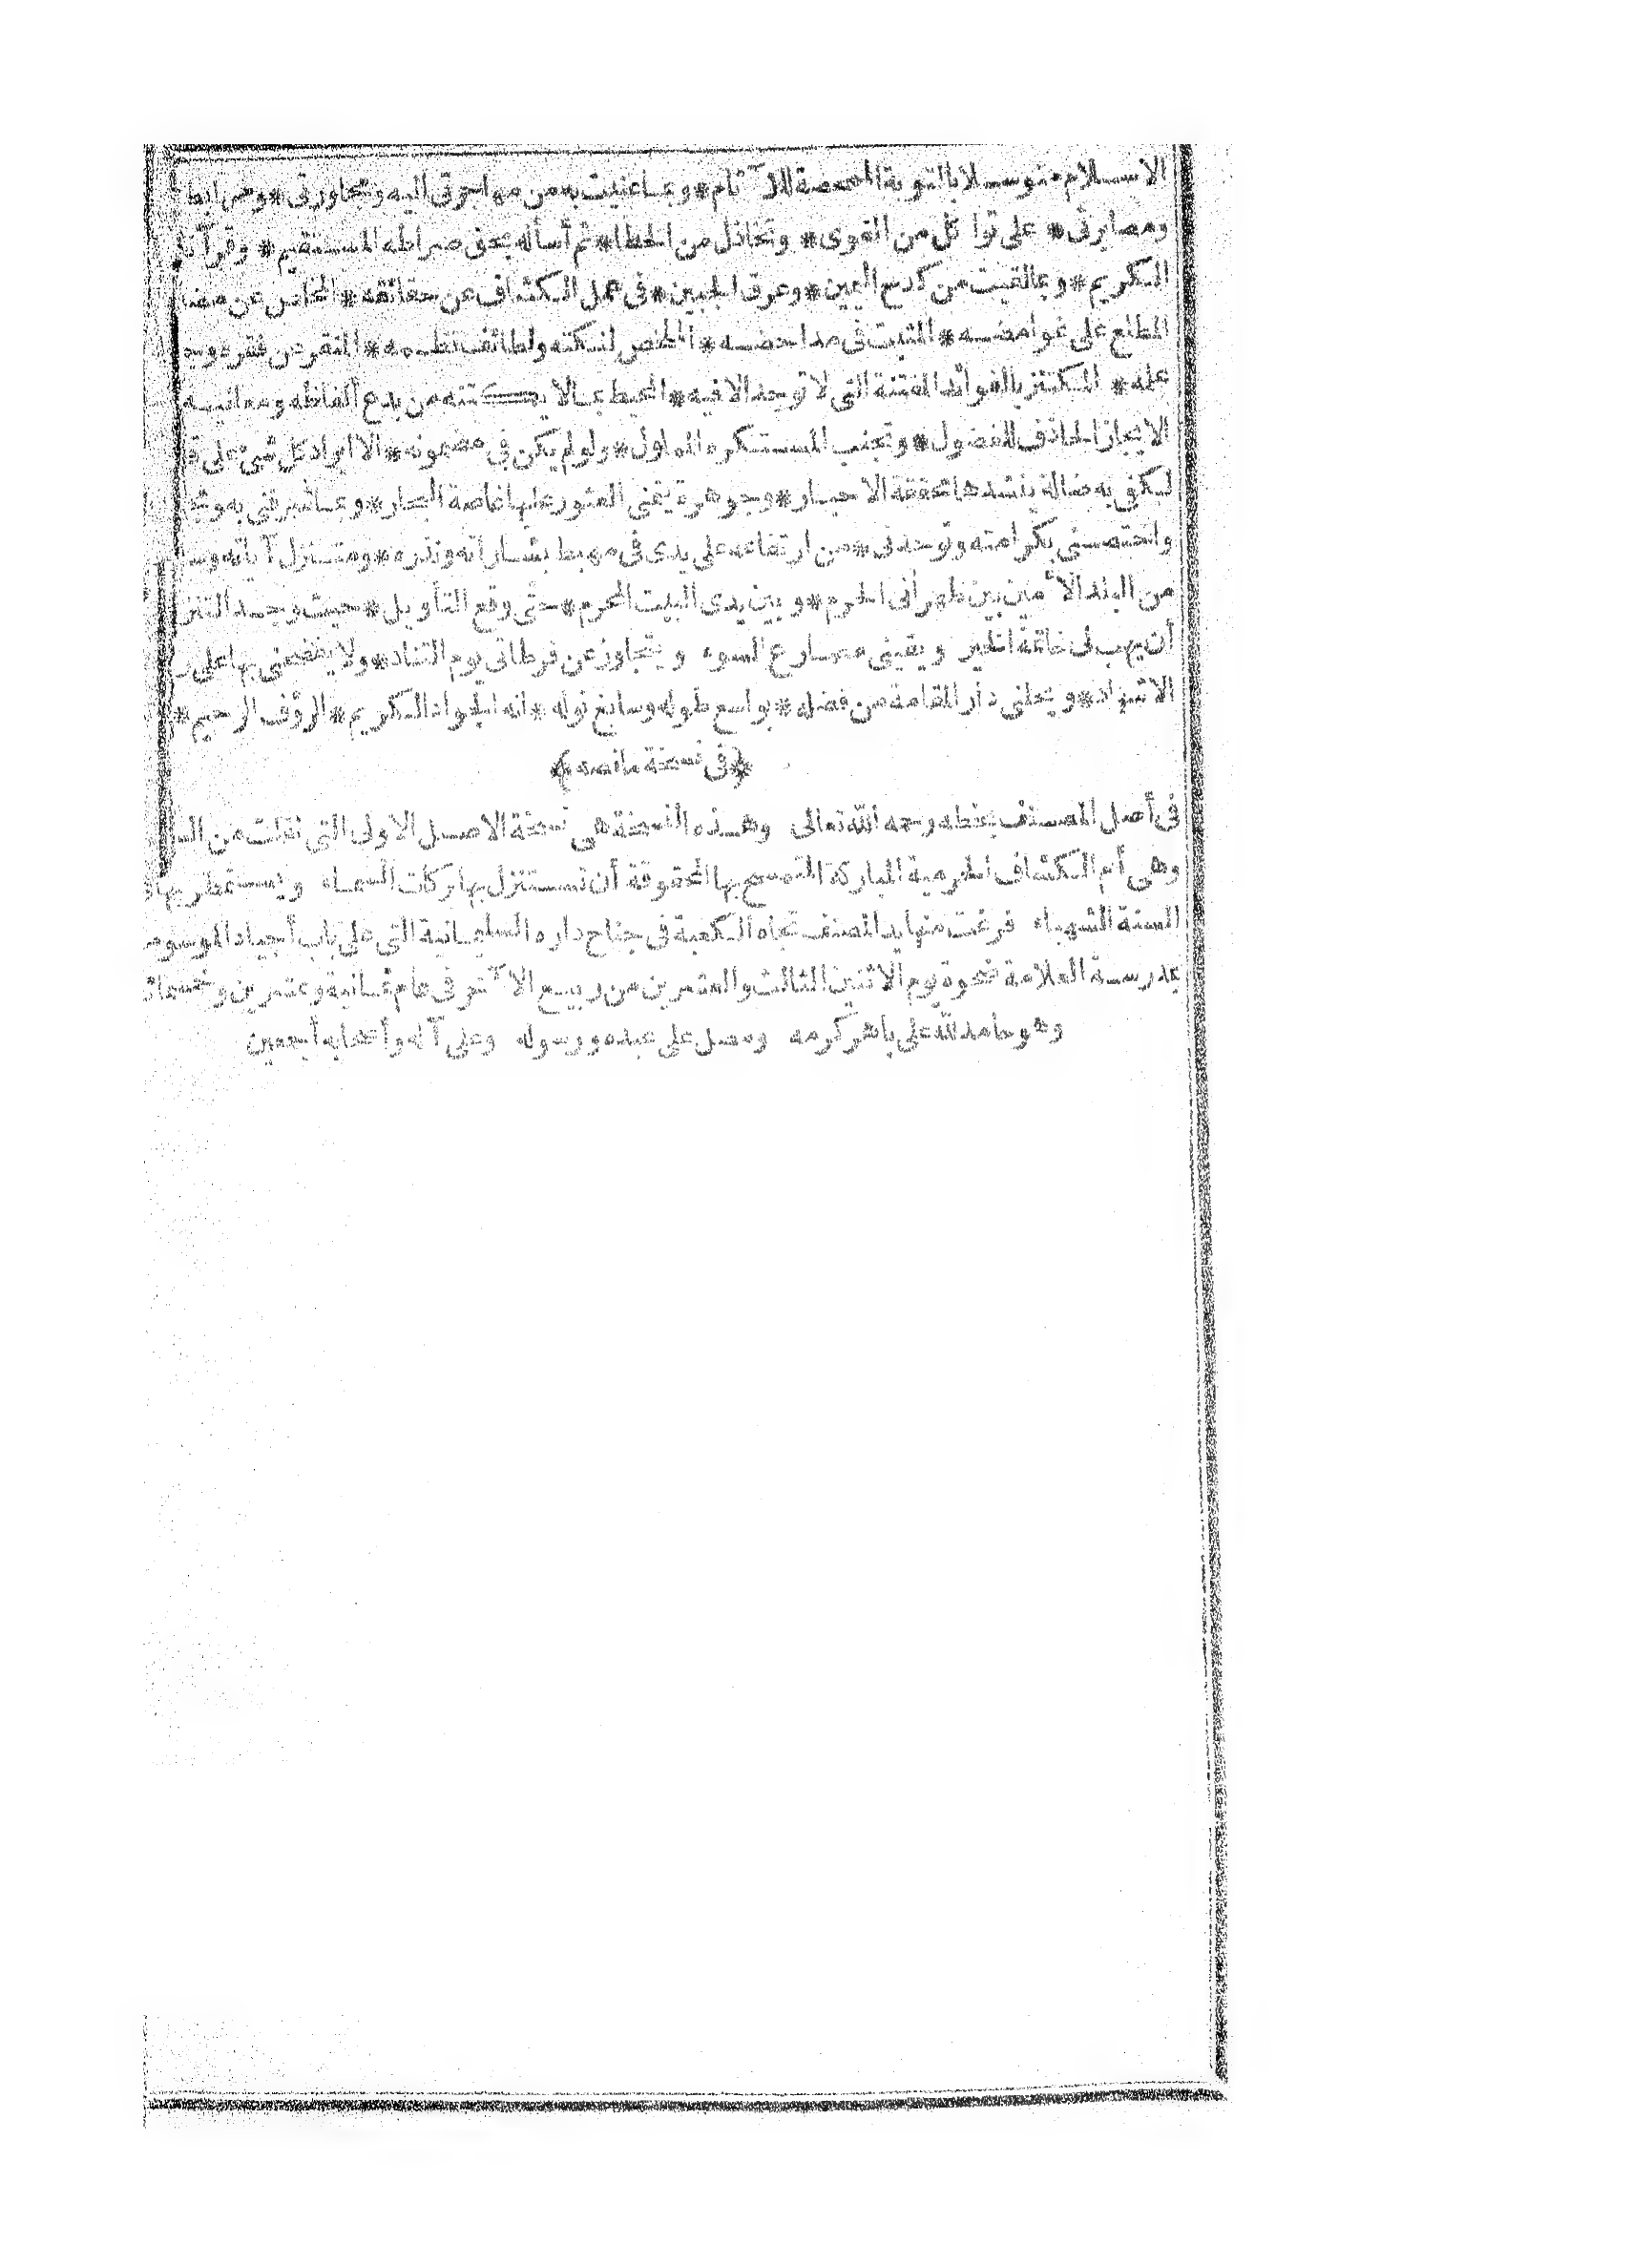 الاسلام * متوسلا بالتوبة الممحصة للآثام * وبما عنيت به من مهاجرتى اليه ومجاورتى * ومرابطـ
ومصابرتى * على تواكل من القوى * وتخاذل من الخطا * ثم أسأله بحق صراطه المستقيم * وقرآنه
الكريم * وبما لقيت من كدح اليمين * وعرق الجبين * فى عمل الكشاف عن حقائقه * المخلص عن مضا
المطلع على غوامضه * المثبت فى مداحضه * الملخص لنكته ولطائف نظمه * المنقر عن فقره وجو
علمه * المكتنز بالفوائد المفتنة التى لا توجد الا فيه * المحيط بما لا يكتنه من بدع ألفاظه ومعانيه
الايجاز الحاذف للفضول * وتجنب المستكره المملول * ولو لم يكن فى مضمونه * الا ايراد كل شئ على قـ
لكفى به ضالة ينشدها محققة الاحبار * وجوهرة يتمنى العثور عليها غاصة البحار * وبما شرفنى به ومجد
واختصنى بكرامته وتوحدنى * من ارتفاعه على يدى فى مهبط بشاراته ونذره * ومتنزل آياته وسـ
من البلد الأمين بين ظهرانى الحرم * وبين يدى البيت المحرم * حتى وقع التأويل * حيث وجد التنز
أن يهب لى خاتمة الخير ويقينى مصارع السوء ويتجاوز عن فرطاتى يوم التناد * ولا يفضحنى بها على ر
الاشهاد * ويحلنى دار المقامة من فضله * بواسع طوله وسابغ نوله * انه الجواد الكريم * الرؤف الرحيم *
﴿فى نسخة مانصه﴾
فى أصل المصنف بخطه رحمه الله تعالى وهذه النسخة هى نسخة الاصل الاولى التى نقلت من السـ
وهى أم الكشاف الحرمية المباركة المتمسح بها المحقوقة أن تستنزل بها بركات السماء ويستمطر بها
السنة الشهباء فرغت منها يد المصنف تجاه الكعبة فى جناح داره السليمانية التى على باب أجياد الموسومـ
بمدرسة العلامة ضحوة يوم الاثنين الثالث والعشرين من ربيع الآخر فى عام ثمانية وعشرين وخمسمائـ
وهو حامد لله على باهر كرمه ومصل على عبده ورسوله وعلى آله وأصحابه أجمعين